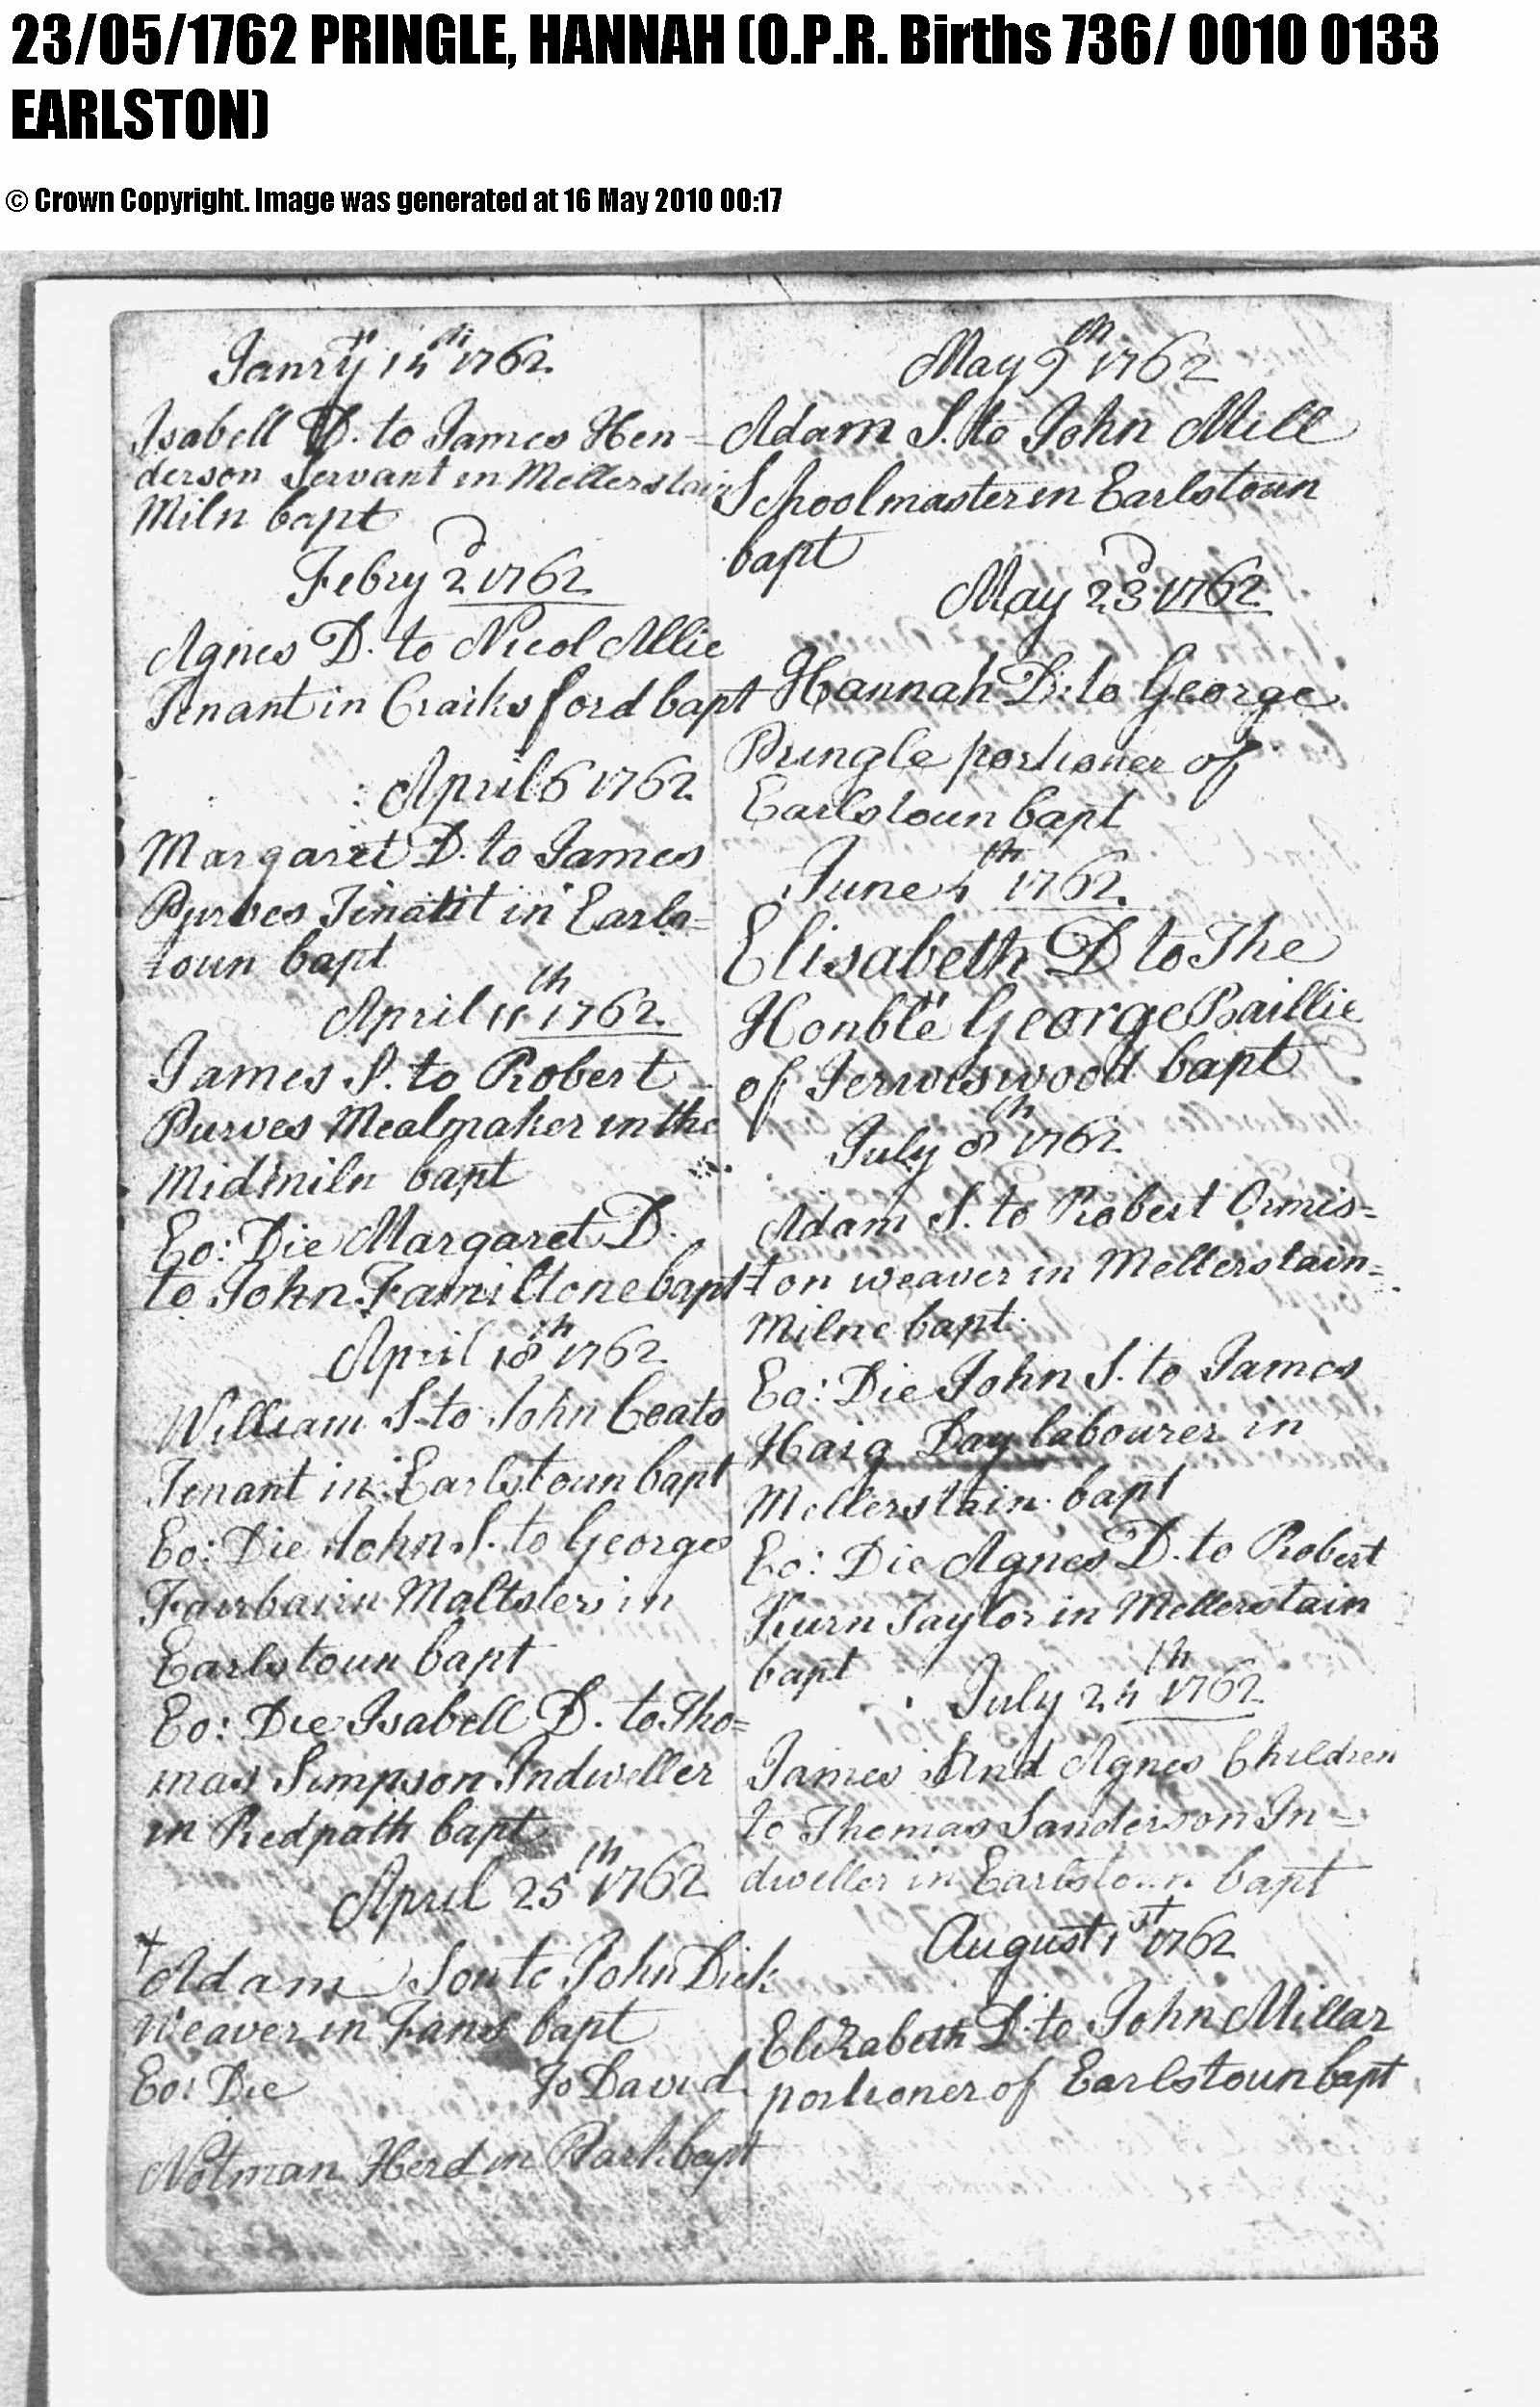 23/05/1762 PRINGLE, HANNAH (O.P.R. Births 736/ 0010 0133
EARLSTON)
© Crown Copyright. Image was generated at 16 May 2010 00:17
Janry 14th 1762.
Isabell D. to James Hen=
derson Servant in Mellerstain
Miln bapt
Febry 2d 1762
Agnes D. to Nicol Allie
Tenant in Craiksford bapt
April 6 1762
Margaret D. to James
Purves Tenant in Earls=
toun bapt
April 11th 1762.
James S. to Robert
Purves Mealmaker in the
Midmiln bapt
Eo: Die Margaret D.
to John Familtone bapt
April 18th 1762
William S. to John Coats
Tenant in Earlstoun bapt
Eo: Die John S. to George
Fairbairn Maltster in
Earlstoun bapt
Eo: Die Isabell D. to Tho=
mas Simpson Indweller
in Redpath bapt
April 25th 1762
+
Adam Son to John Dick
Weaver in Fans bapt
Eo: Die To David
Notman Herd in Park bapt
May 9th 1762
Adam S. to John Mill
Schoolmaster in Earlstoun
bapt
May 23d 1762
Hannah D. to George
Pringle portioner of
Earlstoun bapt
June 4th 1762.
Elisabeth D to The
Honble George Baillie
of Jerviswood bapt
July 8th 1762
Adam S. to Robert Ormis=
ton weaver in Mellerstain=
Milne bapt.
Eo: Die John S. to James
Haig Day labourer in
Mellerstain bapt
Eo: Die Agnes D. to Robert
Kurn Taylor in Mellerstain
bapt
July 24th 1762
James And Agnes Children
to Thomas Sanderson In=
dweller in Earlstoun bapt
August 1st 1762
Elizabeth D. to John Millar
portioner of Earlstoun bapt